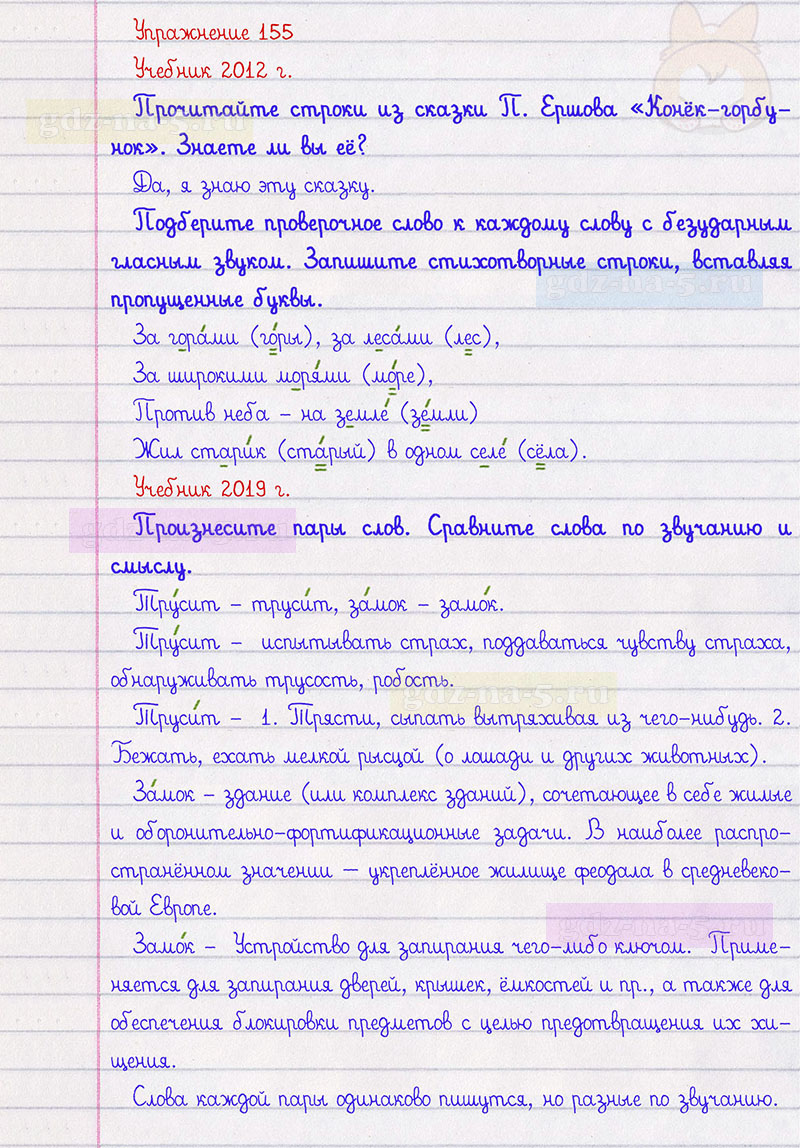 Упражнение 155
Учебник 2012 г.
Прочитайте строки из сказки П. Ершова «Конёк-горбу-
нок». Знаете ли вы её?
Да, я знаю эту сказку.
Подберите проверочное слово к каждому слову с безударным
гласным звуком. Запишите стихотворные строки, вставляя
пропущенные буквы.
За гора́ми (го́ры), за леса́ми (лес),
За широкими моря́ми (мо́ре),
Против неба – на земле́ (зе́мли)
Жил стари́к (ста́рый) в одном селе́ (сёла).
Учебник 2019 г.
Произнесите пары слов. Сравните слова по звучанию и
смыслу.
Тру́сит – труси́т, за́мок – замо́к.
Тру́сит – испытывать страх, поддаваться чувству страха,
обнаруживать трусость, робость.
Труси́т – 1. Трясти, сыпать вытряхивая из чего-нибудь. 2.
Бежать, ехать мелкой рысцой (о лошади и других животных).
За́мок – здание (или комплекс зданий), сочетающее в себе жилые
и оборонительно-фортификационные задачи. В наиболее распро-
странённом значении — укреплённое жилище феодала в средневеко-
вой Европе.
Замо́к – Устройство для запирания чего-либо ключом. Приме-
няется для запирания дверей, крышек, ёмкостей и пр., а также для
обеспечения блокировки предметов с целью предотвращения их хи-
щения.
Слова каждой пары одинаково пишутся, но разные по звучанию.
gdz-na-5.ru
gdz-na-5.ru
gdz-na-5.ru
gdz-na-5.ru